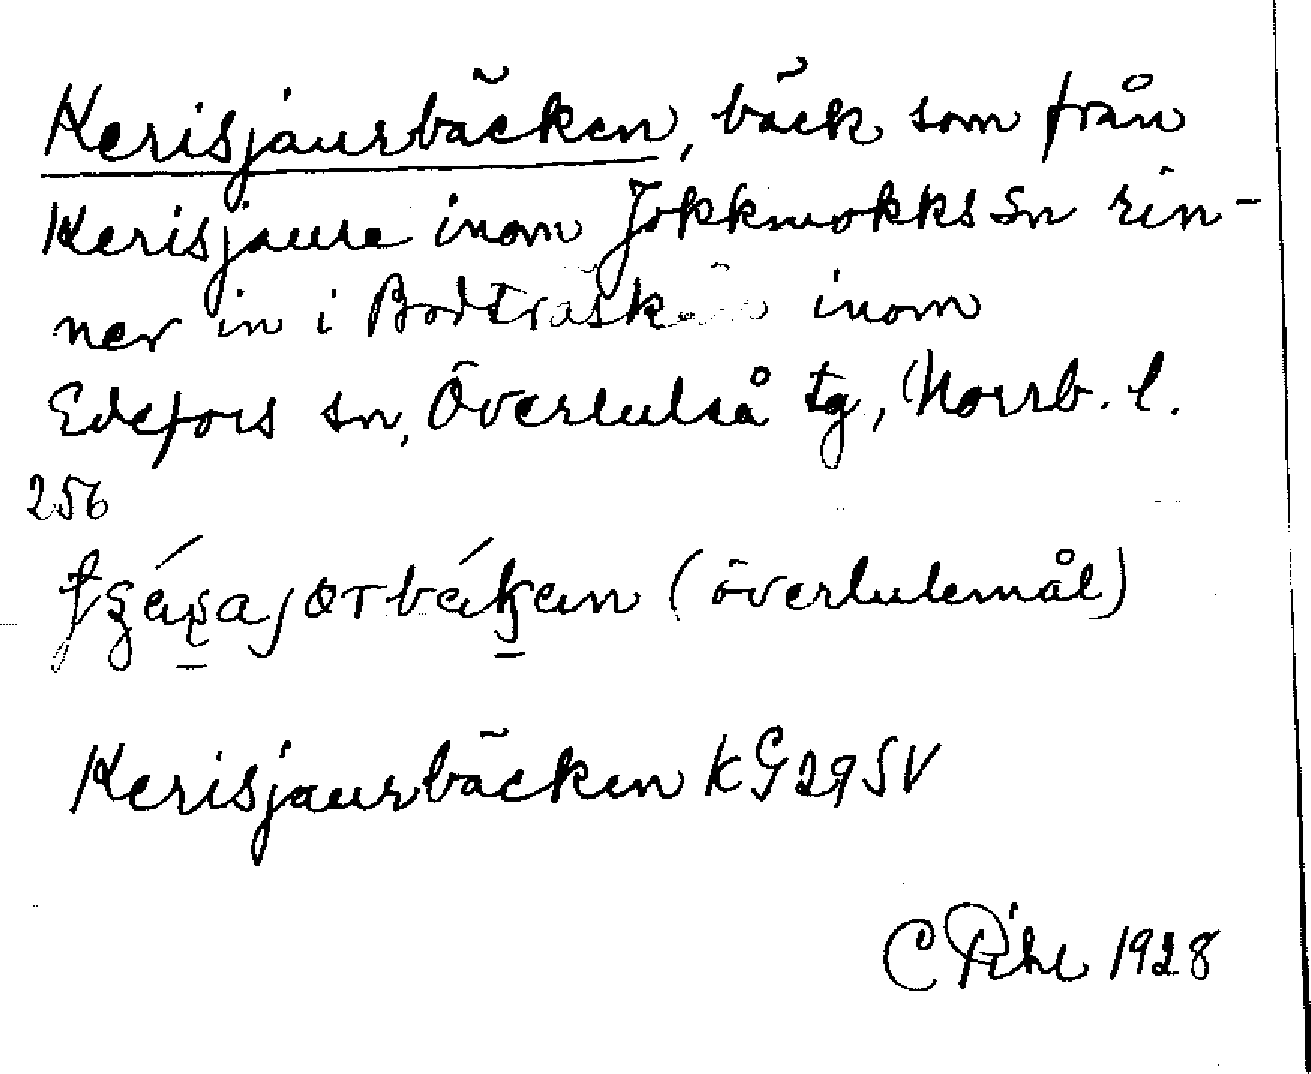 Kerisjaurbäcken, bäck som från
Kerisjaure inom Jokkmokks sn rin-
ner in i Bodträsk inom
Edefors sn, Överluleå tg, Norrb. l.
256
(överlulemål)
Kerisjaurbäcken KG29SV
C Pihl 1928